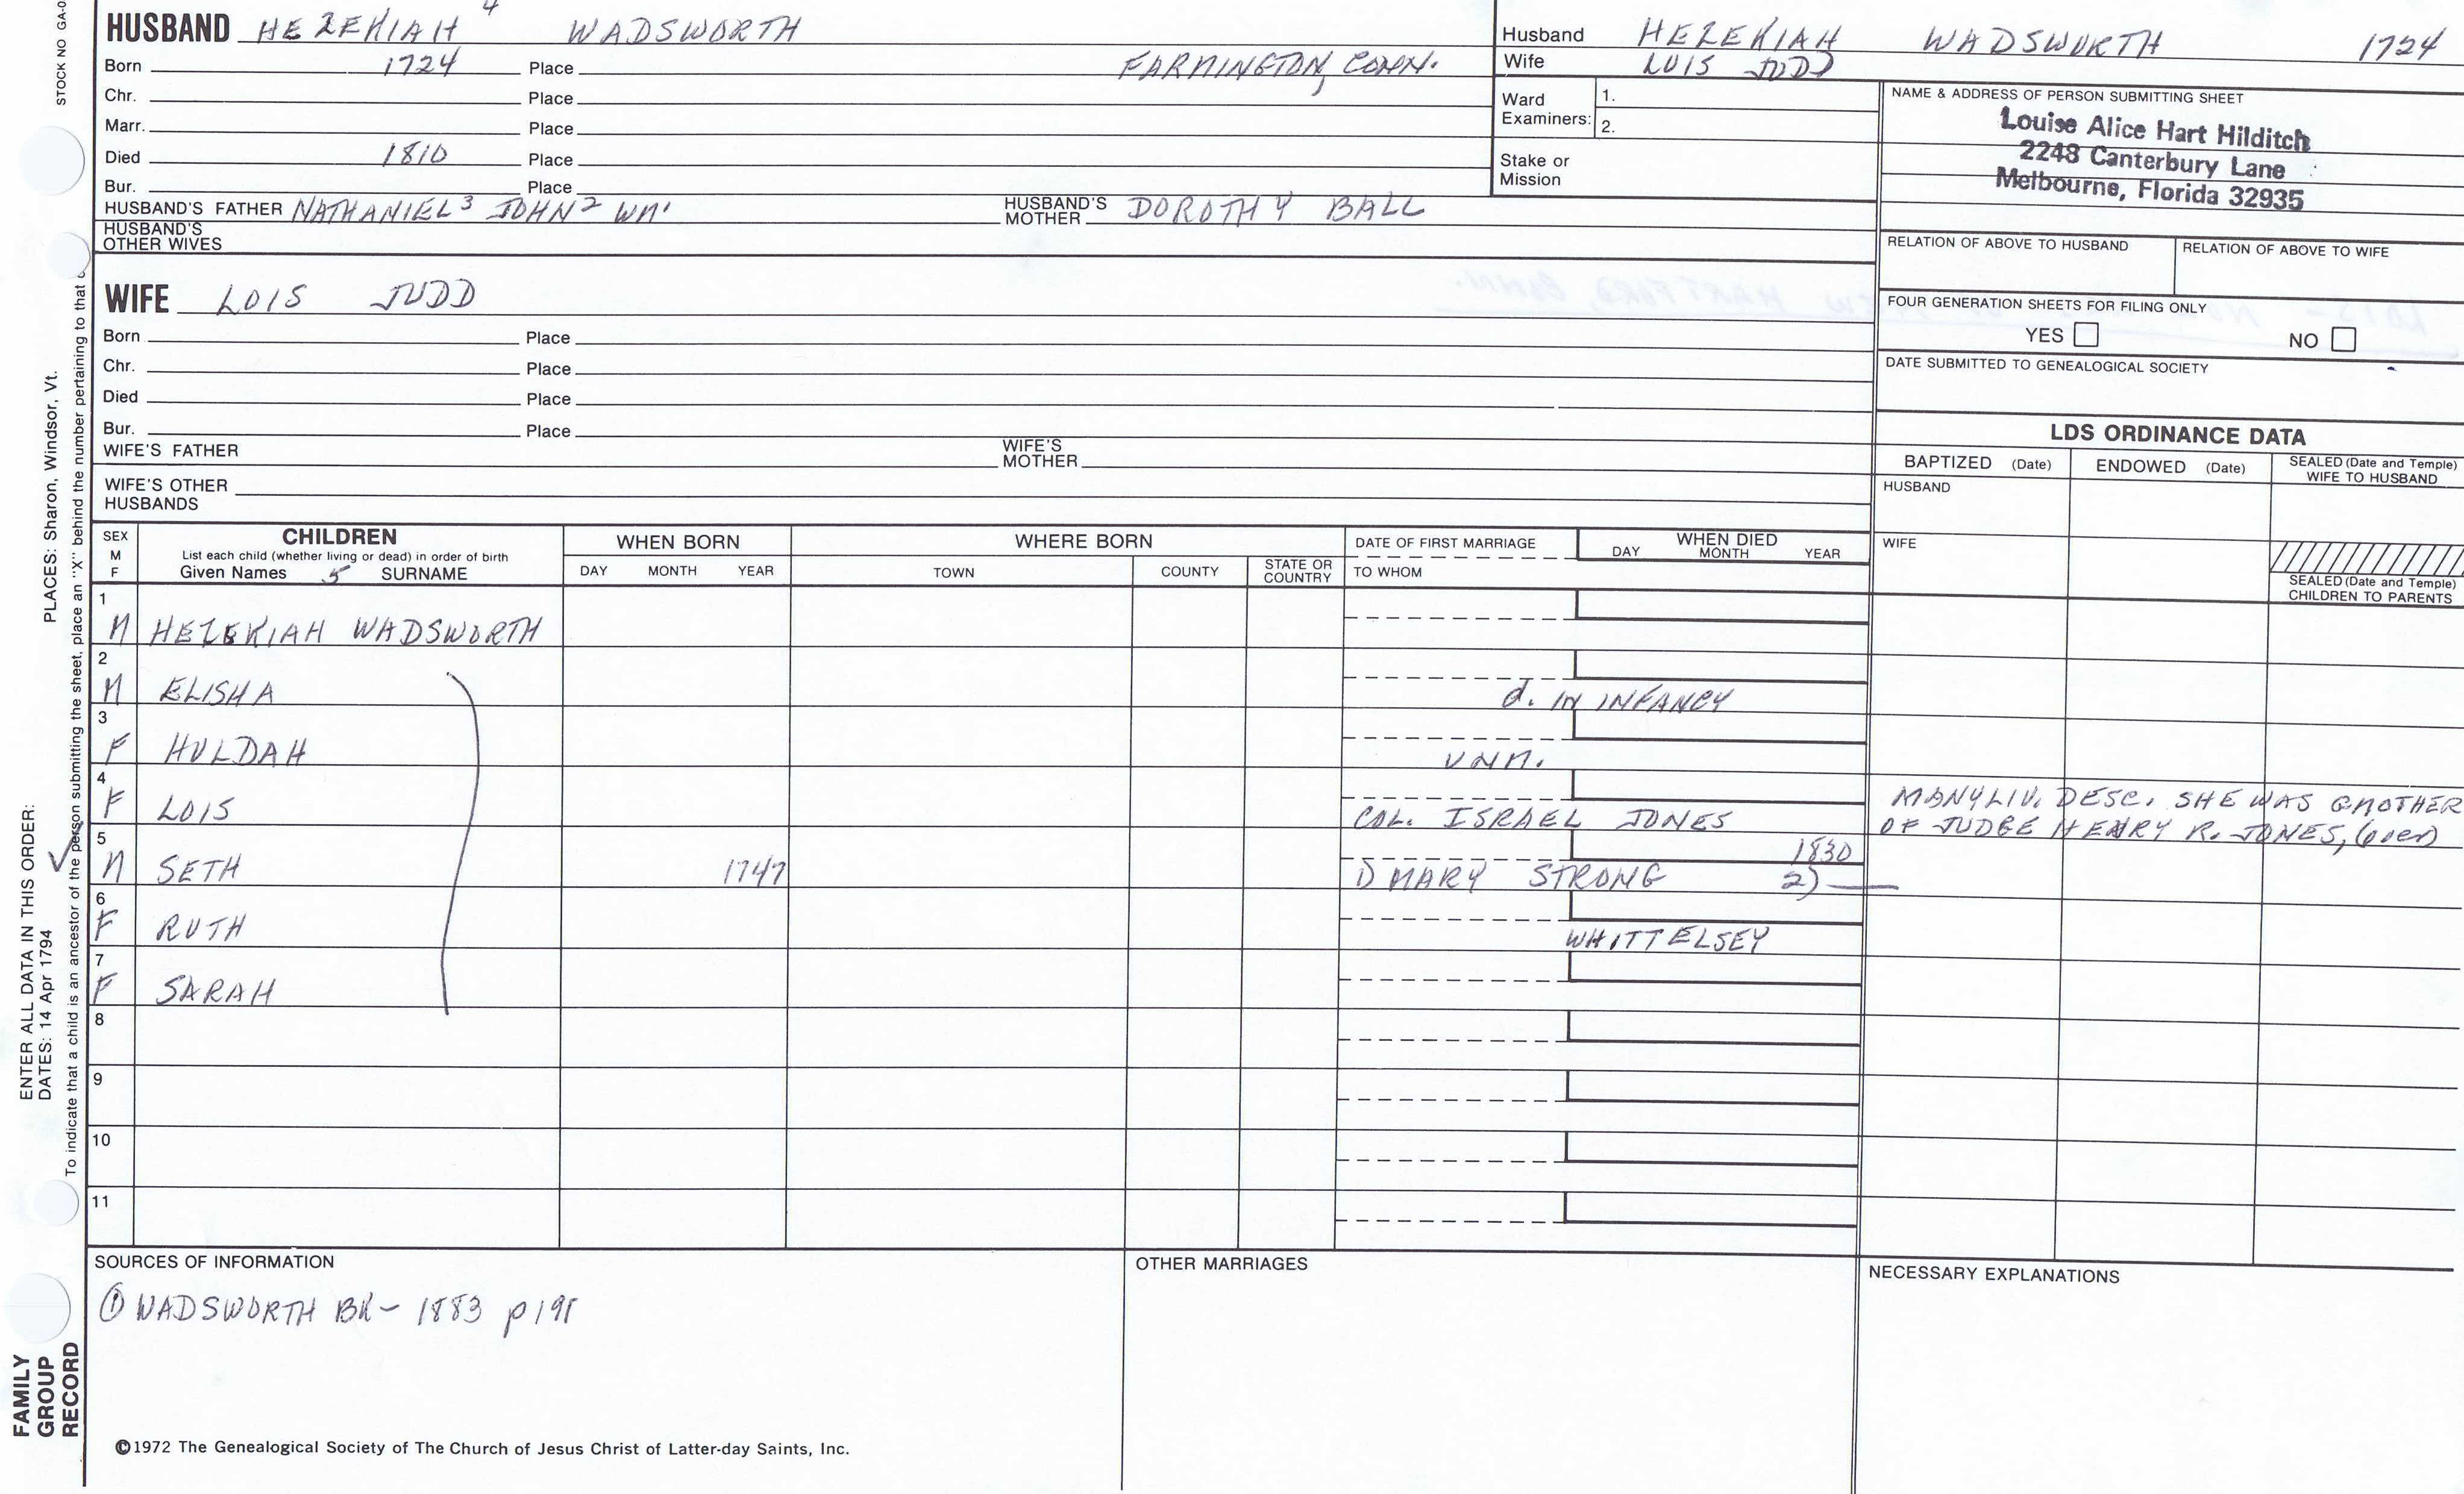 STOCK NO GA-0
HUSBAND HEZEKIAH 4 WADSWORTH
Born 1724 Place FARMINGTON, CONN.
Chr. Place
Marr. Place
Died 1810 Place
Bur. Place
HUSBAND'S FATHER NATHANIEL 3 JOHN 2 WM 1 HUSBAND'S MOTHER DOROTHY BALL
HUSBAND'S OTHER WIVES
Husband HEZEKIAH WADSWORTH 1724
Wife LOIS JUDD
Ward Examiners: 1.
2.
Stake or Mission
NAME & ADDRESS OF PERSON SUBMITTING SHEET
Louise Alice Hart Hilditch
2248 Canterbury Lane
Melbourne, Florida 32935
RELATION OF ABOVE TO HUSBAND RELATION OF ABOVE TO WIFE
FOUR GENERATION SHEETS FOR FILING ONLY
YES NO
DATE SUBMITTED TO GENEALOGICAL SOCIETY
WIFE LOIS JUDD
Born Place
Chr. Place
Died Place
Bur. Place
WIFE'S FATHER WIFE'S MOTHER
WIFE'S OTHER HUSBANDS
LDS ORDINANCE DATA
BAPTIZED (Date) ENDOWED (Date) SEALED (Date and Temple) WIFE TO HUSBAND
HUSBAND
WIFE
SEALED (Date and Temple) CHILDREN TO PARENTS
SEX M F
CHILDREN
List each child (whether living or dead) in order of birth
Given Names 5 SURNAME
WHEN BORN
DAY MONTH YEAR
WHERE BORN
TOWN COUNTY STATE OR COUNTRY
DATE OF FIRST MARRIAGE
TO WHOM
WHEN DIED
DAY MONTH YEAR
1 M HEZEKIAH WADSWORTH
2 M ELISHA d. IN INFANCY
3 F HULDAH UNM.
4 F LOIS COL. ISRAEL JONES MANY LIV. DESC. SHE WAS GMOTHER
OF JUDGE HENRY R. JONES, (over)
5 M SETH 1747 1830
1) MARY STRONG 2)
6 F RUTH WHITTELSEY
7 F SARAH
8
9
10
11
SOURCES OF INFORMATION
① WADSWORTH BK - 1883 p
OTHER MARRIAGES
NECESSARY EXPLANATIONS
©1972 The Genealogical Society of The Church of Jesus Christ of Latter-day Saints, Inc.
ENTER ALL DATA IN THIS ORDER:
DATES: 14 Apr 1794 PLACES: Sharon, Windsor, Vt.
To indicate that a child is an ancestor of the person submitting the sheet, place an "X" behind the number pertaining to that
FAMILY
GROUP
RECORD